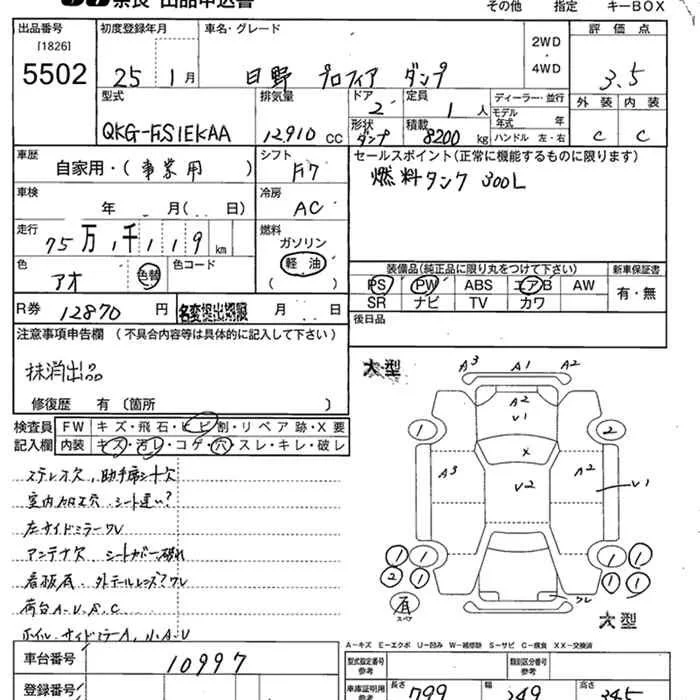 奈良 出品申込書
その他 指定 キーBOX
出品番号 初度登録年月 車名・グレード 評価点
[1826]
5502
25 1月 日野 プロフィア ダンプ
2WD
4WD
3.5
型式 排気量 ドア 定員 ディーラー・並行 外装 内装
2 1人
モデル年式 年
QKG-FS1EKAA 12910cc
形状 ダンプ 積載 8200kg ハンドル 左・右
C C
車歴 シフト セールスポイント(正常に機能するものに限ります)
自家用・(事業用) F7
燃料タンク 300L
車検 冷房
年 月( 日) AC
走行 燃料
75万,千119km
ガソリン
軽油
( )
色 色替 色コード
アオ
装備品(純正品に限り丸をつけて下さい) 新車保証書
PS PW ABS エアB AW 有・無
SR ナビ TV カワ
R券 12870円 名変提出期限 月 日
後日品
注意事項申告欄 (不具合内容等は具体的に記入して下さい)
抹消出品
修復歴 有 〔箇所 〕
大型
A3 A1 A2
A2
V1
1 2
X
A3 V2 A2 V1
検査員 FW キズ・飛石・ヒビ割・リペア跡・X要
記入欄 内装 キズ・汚レ・コゲ・穴・スレ・キレ・破レ
ステレオ欠, 助手席シート欠
室内加工穴 シート違い?
左サイドミラーワレ
アンテナ欠 シートカバー破れ
看板有 外テールレンズ?ワレ
荷台A-U.S.C
1 1 1 1
2 1 1 1
ワレ
有
スペア
大型
A-キズ E-エクボ U-凹み W-補修跡 S-サビ C-腐食 XX-交換済
車台番号 10997
型式指定番号 参考 類別区分番号 参考
登録番号
車庫証明用 参考 長さ 799 幅 249 高さ 345